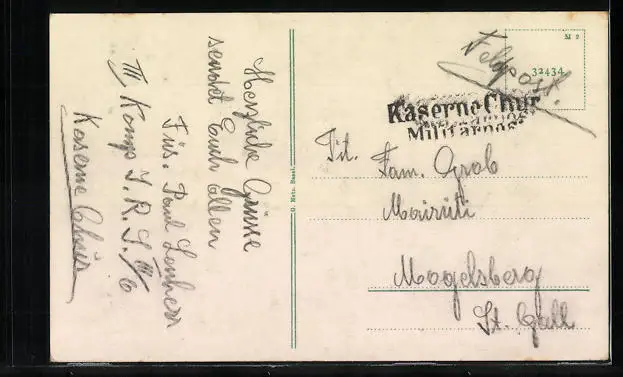 Herzliche Grüsse
sendet Euch Allen
Füs. Paul
III Komp I. R. S. III/6
Kaserne Chur
G. Metz, Basel.
M 2
32434
Feldpost.
Kaserne Chur
Militärpost
Tit. Fam. Grob
Mogelsberg
St. Gall